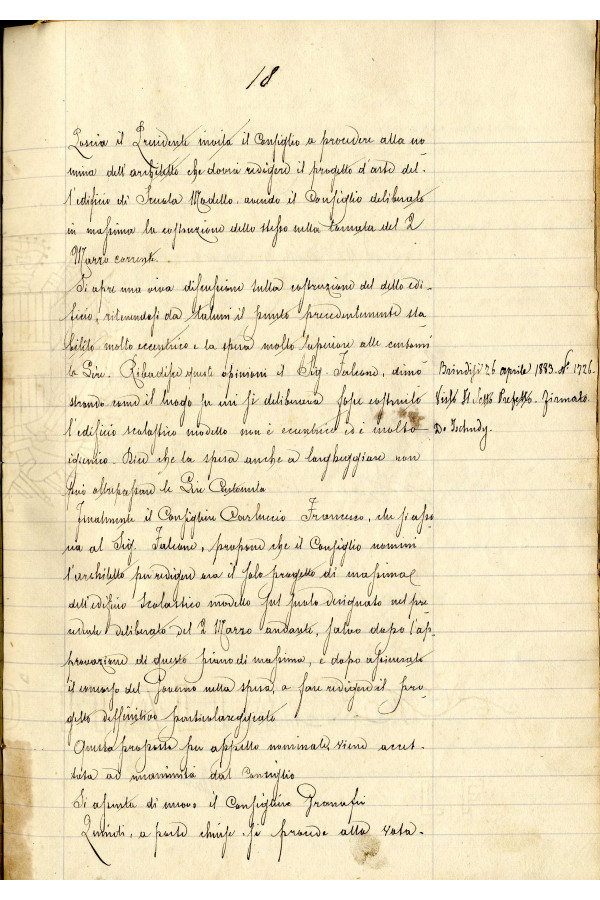 18
Lascia il Presidente invita il Consiglio a procedere alla no-
mina dell'architetto che dovrà redigere il progetto d'arte del-
l'edificio di Scuola Modello. avendo il Consiglio deliberato
in massima la costruzione dello stesso nella tornata del 2
Marzo corrente.
Si apre una viva discussione sulla costruzione del detto edi-
ficio, ritenendosi da taluni il punto precedentemente sta
bilito molto eccentrico e la spesa molto superiore alle centomi
la Lire. Ribadisce queste opinioni il Sig. Falcone, dimo
strando come il luogo in cui si deliberava fosse costruito
l'edificio scolastico modello non è eccentrico ed è molto
igienico. Dice che la spesa anche a largheggiare non
può oltrepassare le Lire Centomila
Finalmente il Consigliere Carluccio Francesco, che si asso
cia al Sig. Falcone, propone che il Consiglio nomini
l'architetto per redigere ora il solo progetto di massima
dell'edificio scolastico modello sul suolo designato nel pre
cedente deliberato del 2 Marzo andante, salvo dopo l'ap-
provazione di questo piano di massima, e dopo assicurato
il concorso del Governo nella spesa, a fare redigere il pro-
getto diffinitivo particolareggiato
Questa proposta per appello nominale, viene accet-
tata ad unanimità dal Consiglio
Si assenta di nuovo il Consigliere Granafei
Quindi, a porte chiuse si procede alla vota-
Brindisi 26 aprile 1883. N.° 1726.
Visto Il Sotto Prefetto. Firmato
De Tschudy.